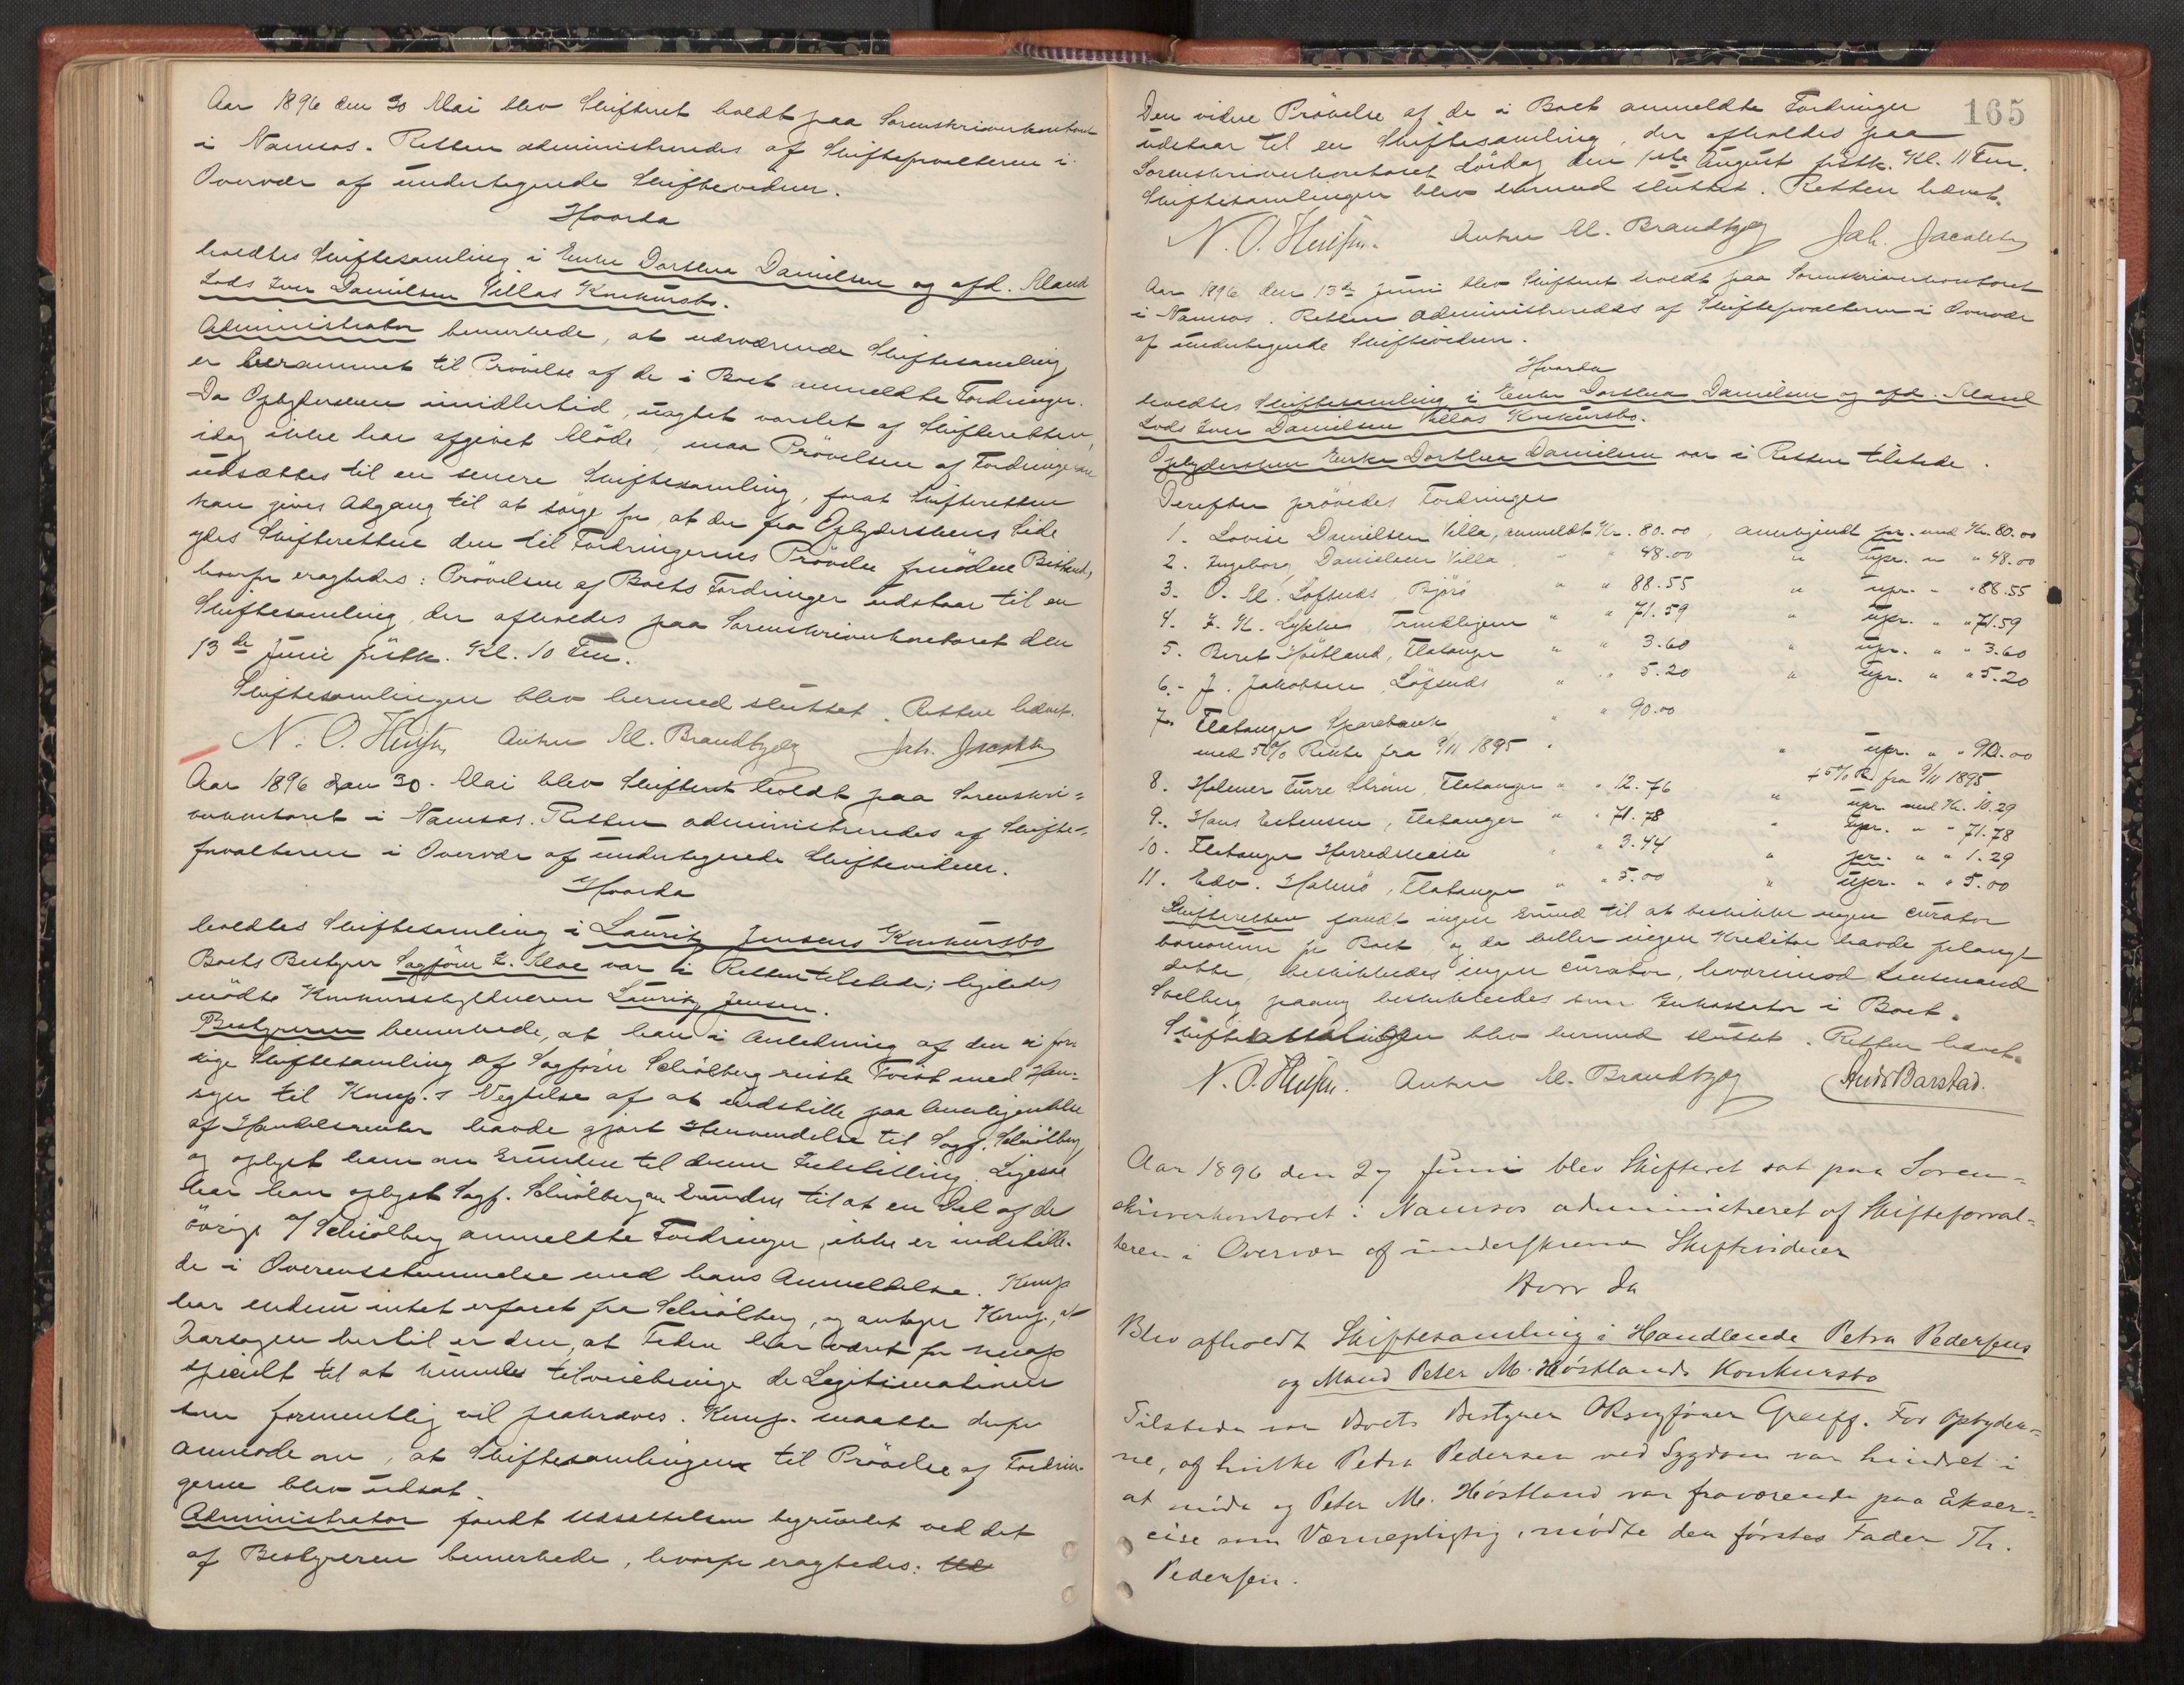 Aar 1896 den 30 Mai blev Skifteret holdt paa Sorenskriverkontoret
i Namsos. Retten administreredes af Skifteforvalteren i
Overvær af undertegnede Skiftevidner.
Hvorda
holdtes Skiftesamling i Enke Dorthea Danielsen og afd. Mand
Lods Iver Danielsen Villas Konkursbo.
Administrator bemerkede, at nærværende Skiftesamling
er berammet til Prövelse af de i Boet anmeldte Fordringer.
Da Opbydersken imidlertid, uagtet varslet af Skifteretten,
idag ikke har afgivet Möde, maa Prövelsen af Fordringerne
udsættes til en senere Skiftesamling, forat Skifteretten
kan gives Adgang til at sörge for, at der fra Opbyderskens Side
ydes Skifteretten den til Fordringernes Prövelse fornödne Bistand,
hvorfor eragtedes: Prövelsen af Boets Fordringer udstaar til en
Skiftesamling, der afholdes paa Sorenskriverkontoret den
13de Juni förstk. Kl. 10 Fm.
Skiftesamlingen blev hermed sluttet. Retten hævet.
N. O. Anton M. Brandtzæg Joh. Jacobsen
Aar 1896 den 30. Mai blev Skifteret holdt paa Sorenskri-
verkontoret i Namsos. Retten administreredes af Skifte-
forvalteren i Overvær af undertegnede Skiftevidner.
Hvorda
holdtes Skiftesamling i Lauritz Jensens Konkursbo
Boets Bestyrer Sagförer L. Moe var i Retten tilstede; ligeledes
mödte Konkursskyldneren Lauritz Jensen.
Bestyreren bemerkede, at han i Anledning af den i for-
rige Skiftesamling af Sagförer Schiölberg reiste Tvist med Hen-
syn til Komp.s Vegtelse af at indstille paa Anerkjendelse
af Handelsrenter havde gjort Henvendelse til Sagf. Schiölberg
og oplyst ham om Grunden til denne Indstilling. Ligesaa
har han oplyst Sagf. Schiölberg om Grunden til at en Del af de
övrige af Schiölberg anmeldte Fordringer, ikke er indstille-
de i Overensstemmelse med hans Anmeldelse. Komp
har endnu intet erfaret fra Schiölberg, og antager Komp., at
Aarsagen hertil er den, at Tiden har været for knap
specielt til at kunne tilveiebringe de Legitimationer
som formentlig vil paakræves. Komp. maatte derfor
anmode om, at Skiftesamlingen til Prövelse af Fordrin-
gerne blev udsat.
Administrator fandt Udsættelsen begrundet ved det
af Bestyreren bemerkede, hvorfor eragtedes:
165
Den videre Prövelse af de i Boet anmeldte Fordringer
udstaar til en Skiftesamling, der afholdes paa
Sorenskriverkontoret Lördag den 1ste August förstk. Kl. 11 Fm.
Skiftesamlingen blev hermed sluttet. Retten hævet.
N. O. Anton M. Brandtzæg Joh. Jacobsen
Aar 1896 den 13de Juni blev Skifteret holdt paa Sorenskriverkontoret
i Namsos. Retten administreredes af Skifteforvalteren i Overvær
af undertegnede Skiftevidner.
Hvorda
holdtes Skiftesamling i Enke Dorthea Danielsen og afd. Mand
Lods Iver Danielsen Villas Konkursbo.
Opbydersken Enke Dorthea Danielsen var i Retten tilstede.
Derefter prövedes Fordringer
1. Lovise Danielsen Villa, anmeldt Kr. 80.00, anerkjendt pr. med Kr. 80.00
2. Ingeborg Danielsen Villa " " 48.00 " upr. " " 48.00
3. O. M. Löfsnæs, Björö " " 88.55 " upr. " " 88.55
4. F. H. Lykke, Trondhjem " " 71.59 " upr. " " 71.59
5. Beret Höstland, Flatanger " " 3.60 " upr. " " 3.60
6. J. Jakobsen, Löfsnæs " " 5.20 " upr. " " 5.20
7. Flatanger Sparebank " " 90.00
med 5% Rente fra 9/11 1895 " " upr. " " 90.00
+ 5% R. fra 9/11 1895
8. Holmer Furre Ström, Flatanger " " 12.76 " upr. med Kr. 10.29
9. Hans Estensen, Flatanger " " 71.78 " upr. " " 71.78
10. Flatanger Herredskasse " " 3.44 " pr. " " 1.29
11. Edv. Holmö, Flatanger " " 5.00 " upr. " " 5.00
Skifteretten fandt ingen Grund til at beskikke nogen curator
bonorum for Boet, og da heller ingen Kreditor havde forlangt
dette, beskikkedes ingen curator, hvorimod Lensmand
Solberg paany beskikkedes som Inkassator i Boet.
Skiftesamlingen blev hermed sluttet. Retten hævet.
N. O. Anton M. Brandtzæg Ands Barstad.
Aar 1896 den 27 Juni blev Skifteret sat paa Soren-
skriverkontoret i Namsos administreret af Skifteforval-
teren i Overvær af underskrevne Skiftevidner
Hvor da
Blev afholdt Skiftesamling i Handlende Petra Pedersens
og Mand Peter M. Høstlands Konkursbo
Tilstede var Boets Bestyrer ORsagfører Greiff. For Opbyder-
ne, af hvilke Petra Pedersen ved Sygdom var hindret i
at møde og Peter M. Høstland var fraværende paa Ekser-
cise som Værnepligtig, mødte den førstes Fader Th.
Pedersen.